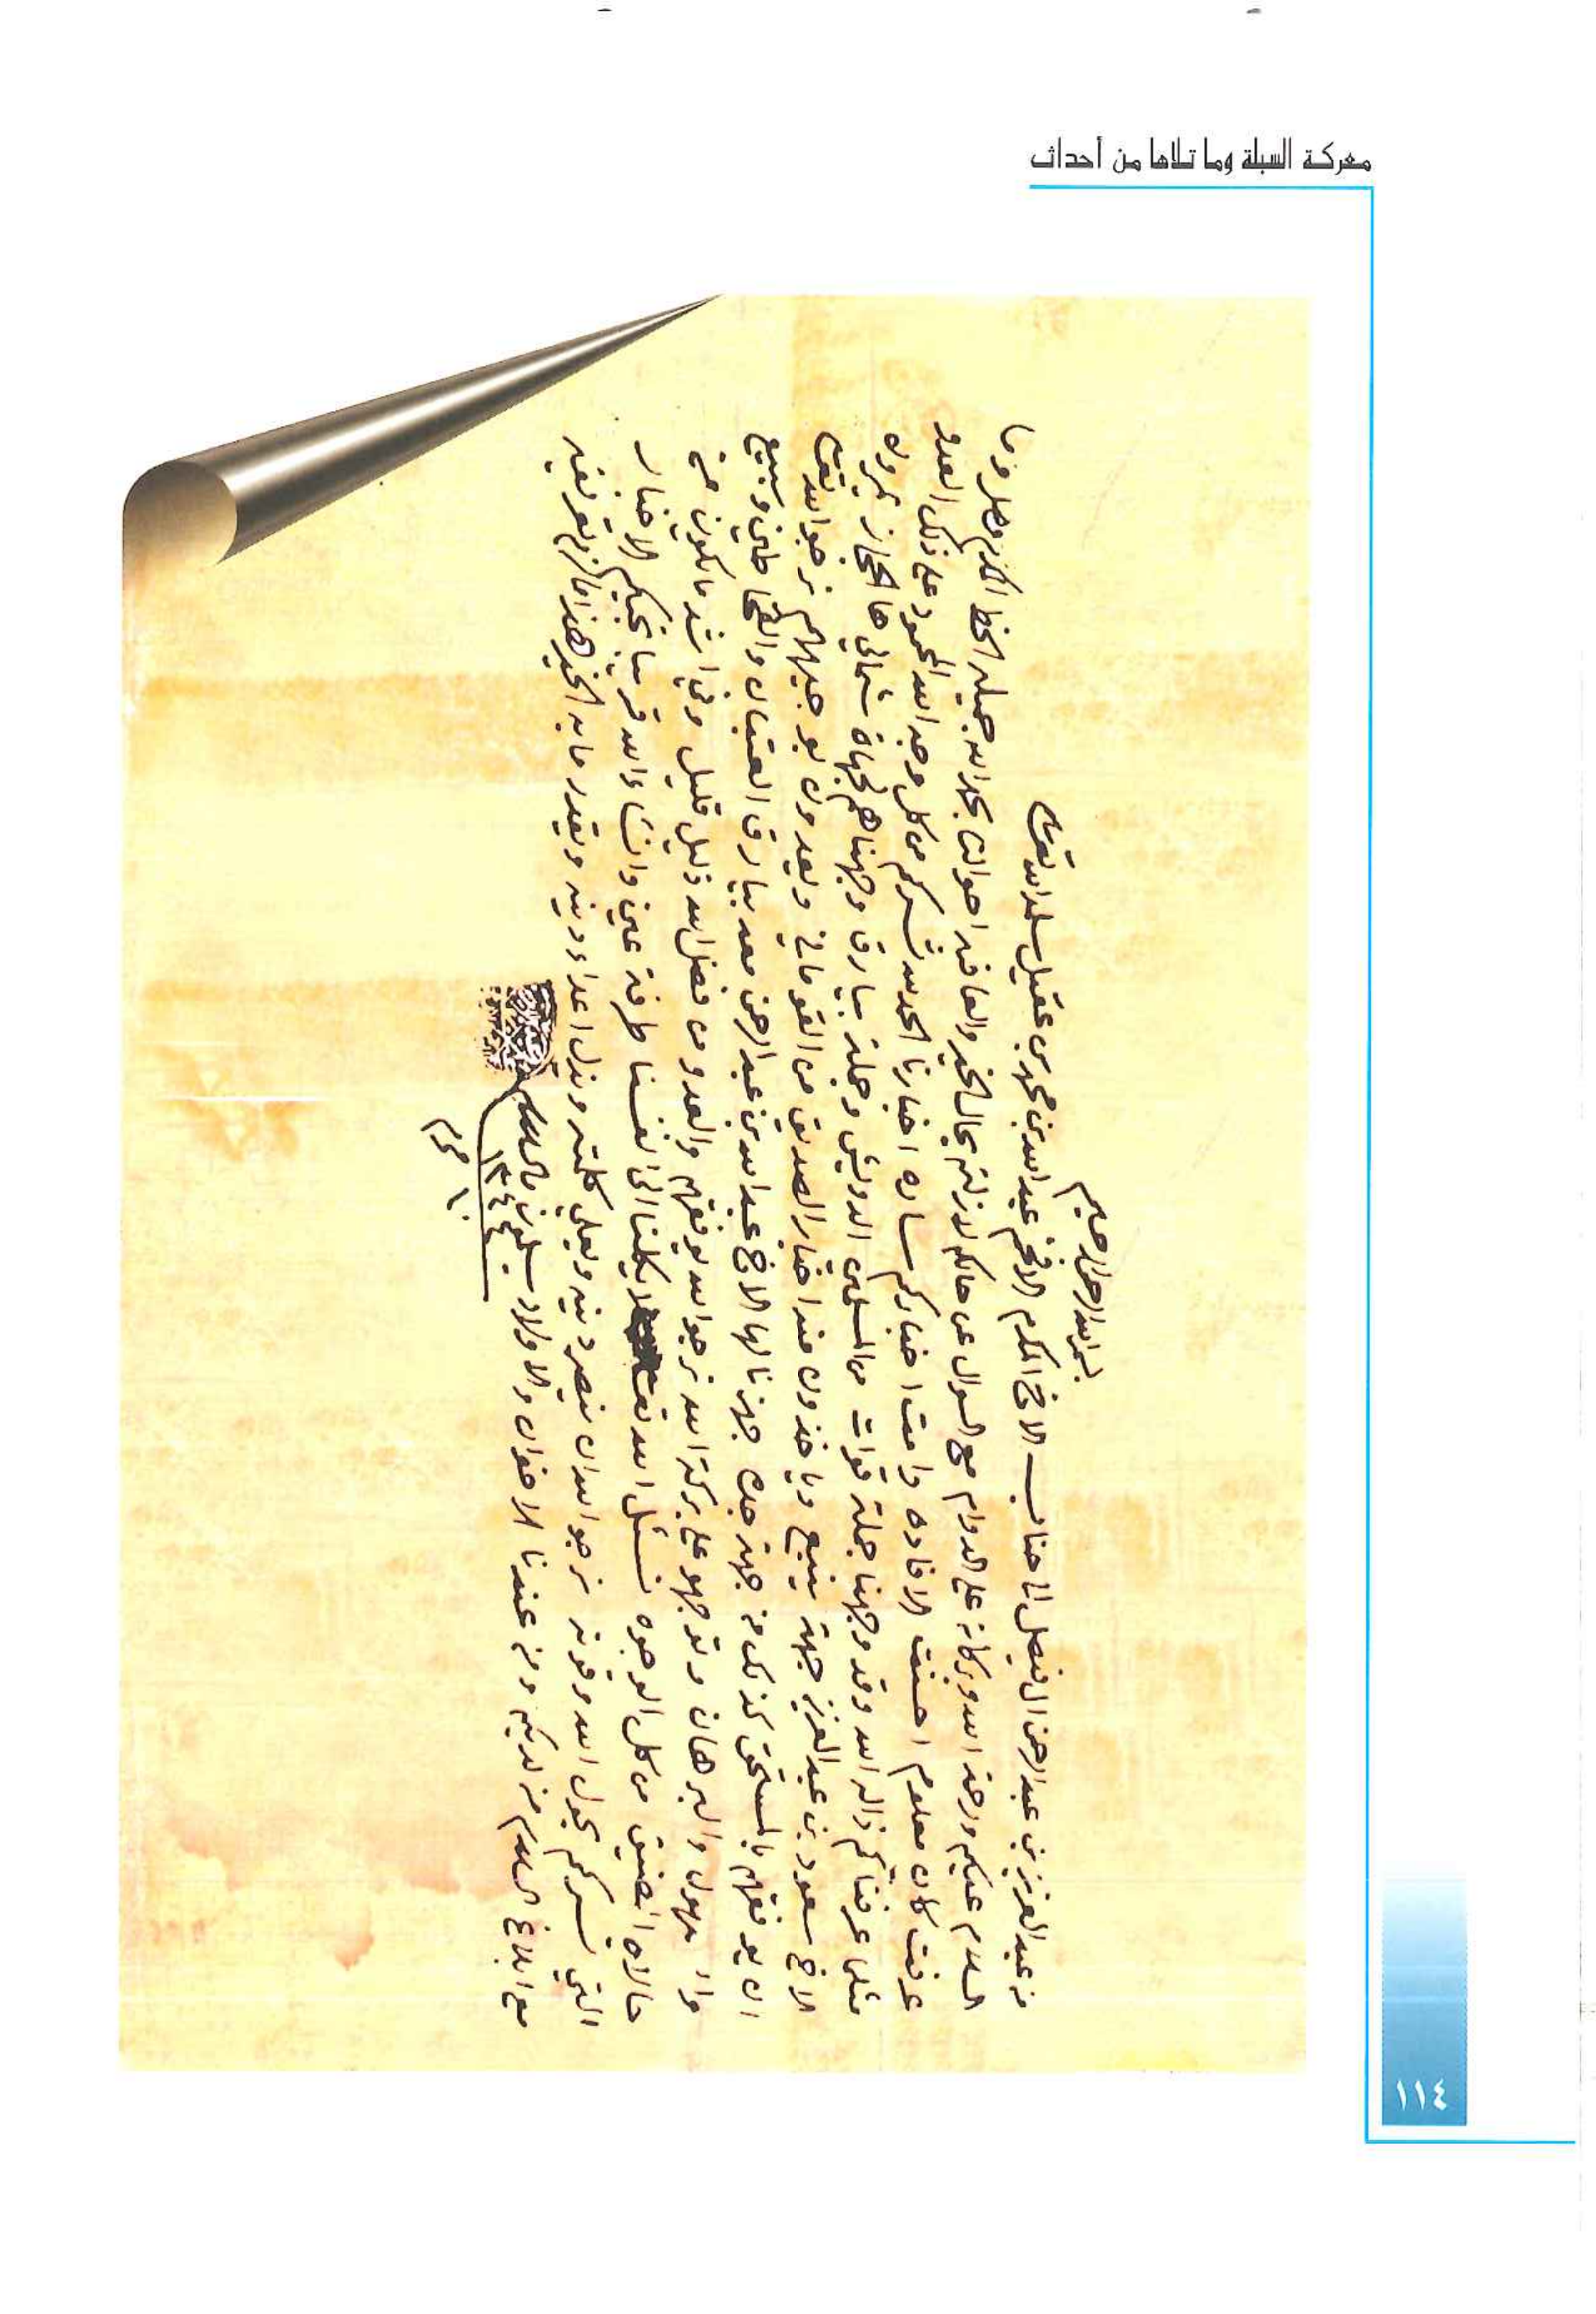 معركة السبلة وما تلاها من أحداث
بسم الله الرحمن الرحيم
من عبد العزيز بن عبد الرحمن ال فيصل الى جناب الاخ المكرم الافخم عبد الله بن محمد بن عقيل سلمه الله تعالى
السلام عليكم ورحمة الله وبركاته على الدوام مع السوال عن حالكم لازلتم بحال الخير والعافيه احوالنا بحمد الله جميله الخط المكرم وصل وما
عرفت كان معلوم احسنت الافاده دامت اخباركم ساره اخبارنا الحمد لله تسركم من كل وجه الله المحمود على ذلك العدو
مثلما عرفناكم ذاله الله وقد وجهنا جملة قوات من المسلمين الدويش وجملة بيارق وجهناهم لجهاة شمالي ها الحجاز يمرون
الاخ سعود بن عبد العزيز جهة ينبع وياخذون منه اخبار الصديق من القوماني ويعدون بوجيههم نرجو الله تعالى
ان يوفقهم بالمستحق كذلك من جهة جده جهزنا لها الاخ عبد الله بن عبد الرحمن معه بيارق العتبان والقحاطين وسبيع
والسهول والبرهان وتوجهو على بركة الله نرجو الله يوفقهم والعدو من فضل الله ذليل قليل وفي اشد مايكون من
حالاة الضيق من كل الوجوه نسئل الله تعالى لايكلنا الى انفسنا طرفة عين وانشاء الله قريب تجيكم الاخبار
التي تسركم بحول الله وقوته نرجو الله ان ينصر دينه ويعلي كلمته ويذل اعداء دينه ويقدر مابه الخير هذا مالزم تعريفه
مع ابلاغ السلام من لديكم ومن عندنا الاخوان والاولاد يسلمون والسلام
١٣٤٤
١٠ محرم
١١٤